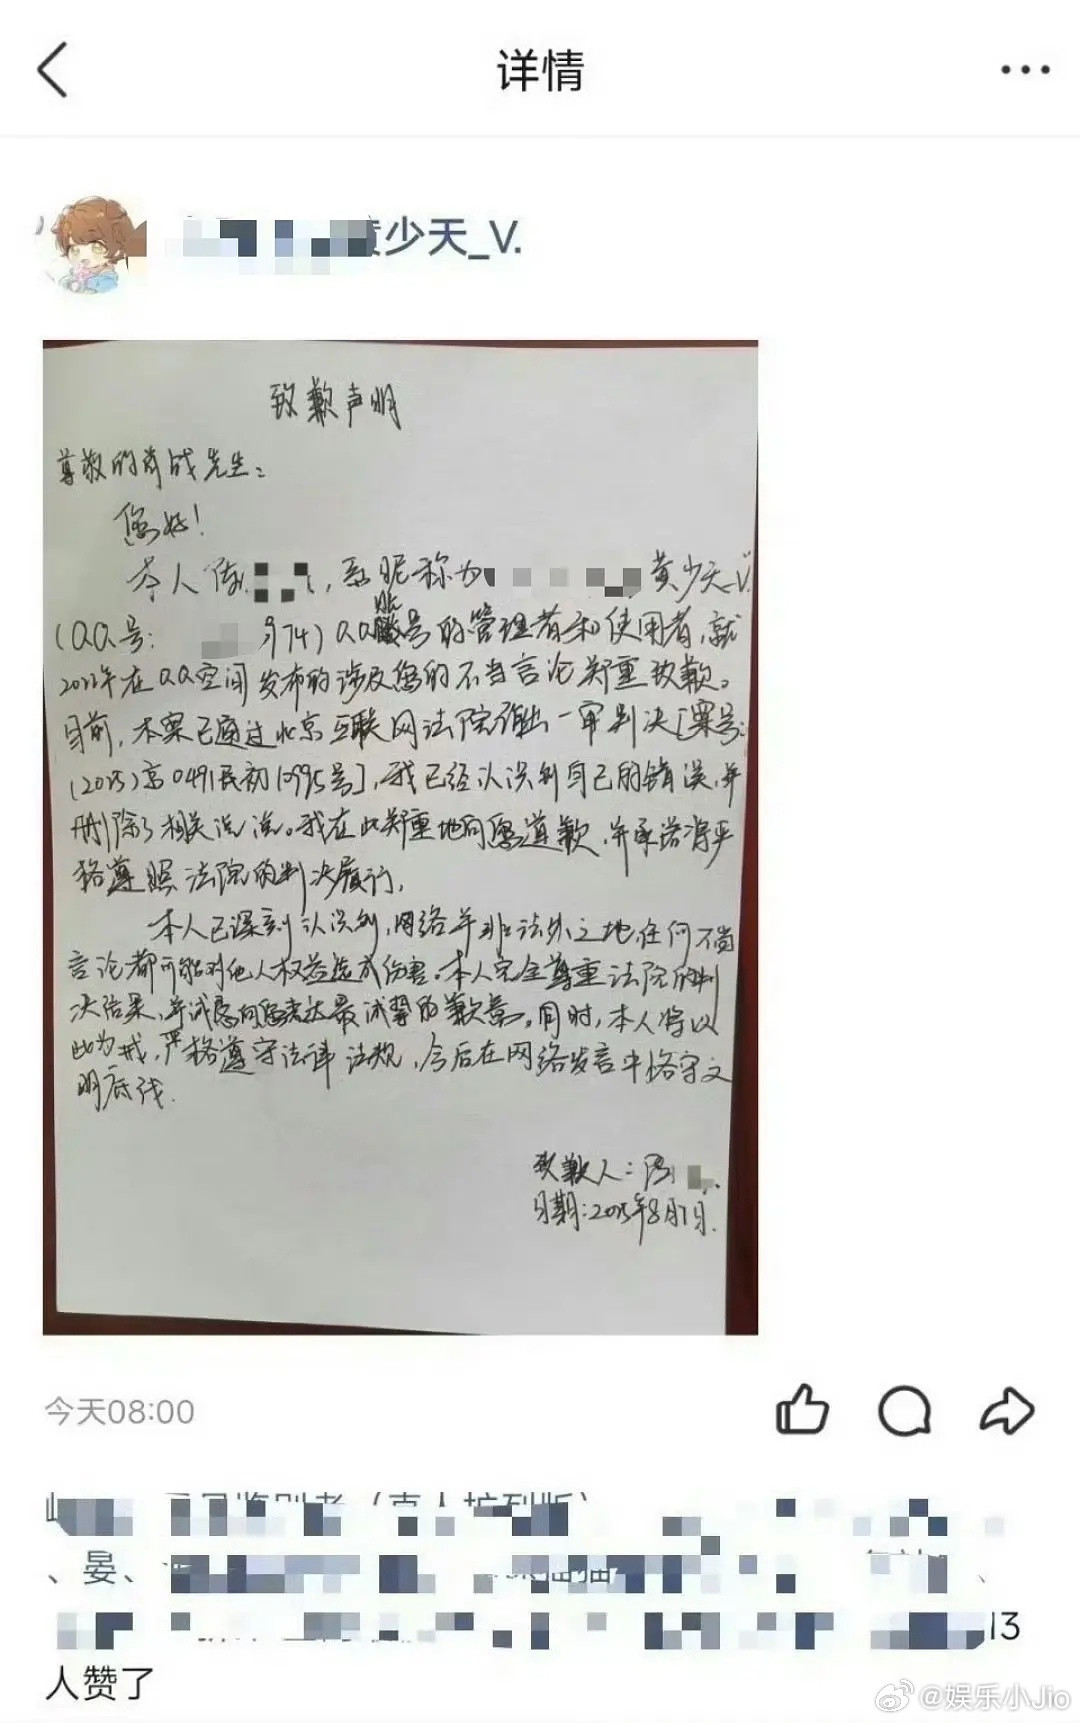 详情
少天_V.
致歉声明
尊敬的肖战先生：
您好！
本人陈，系昵称为黄少天_V."
(QQ号: 974) QQ账号的管理者和使用者，就
2022年在QQ空间发布的涉及您的不当言论郑重致歉。
目前，本案已通过北京互联网法院作出一审判决[案号:
(2025)京0491民初1995号]，我已经认识到自己的错误，并
删除了相关说说。我在此郑重地向您道歉，并承诺将严
格遵照法院的判决履行。
本人已深刻认识到，网络并非法外之地，任何不当
言论都可能对他人权益造成伤害。本人完全尊重法院的判
决结果，并诚恳向您表达最诚挚的歉意。同时，本人将以
此为戒，严格遵守法律法规，今后在网络发言中恪守文
明底线.
致歉人：陈
日期：2025年8月7日.
今天08:00
、晏、
13
人赞了
@娱乐小Jio